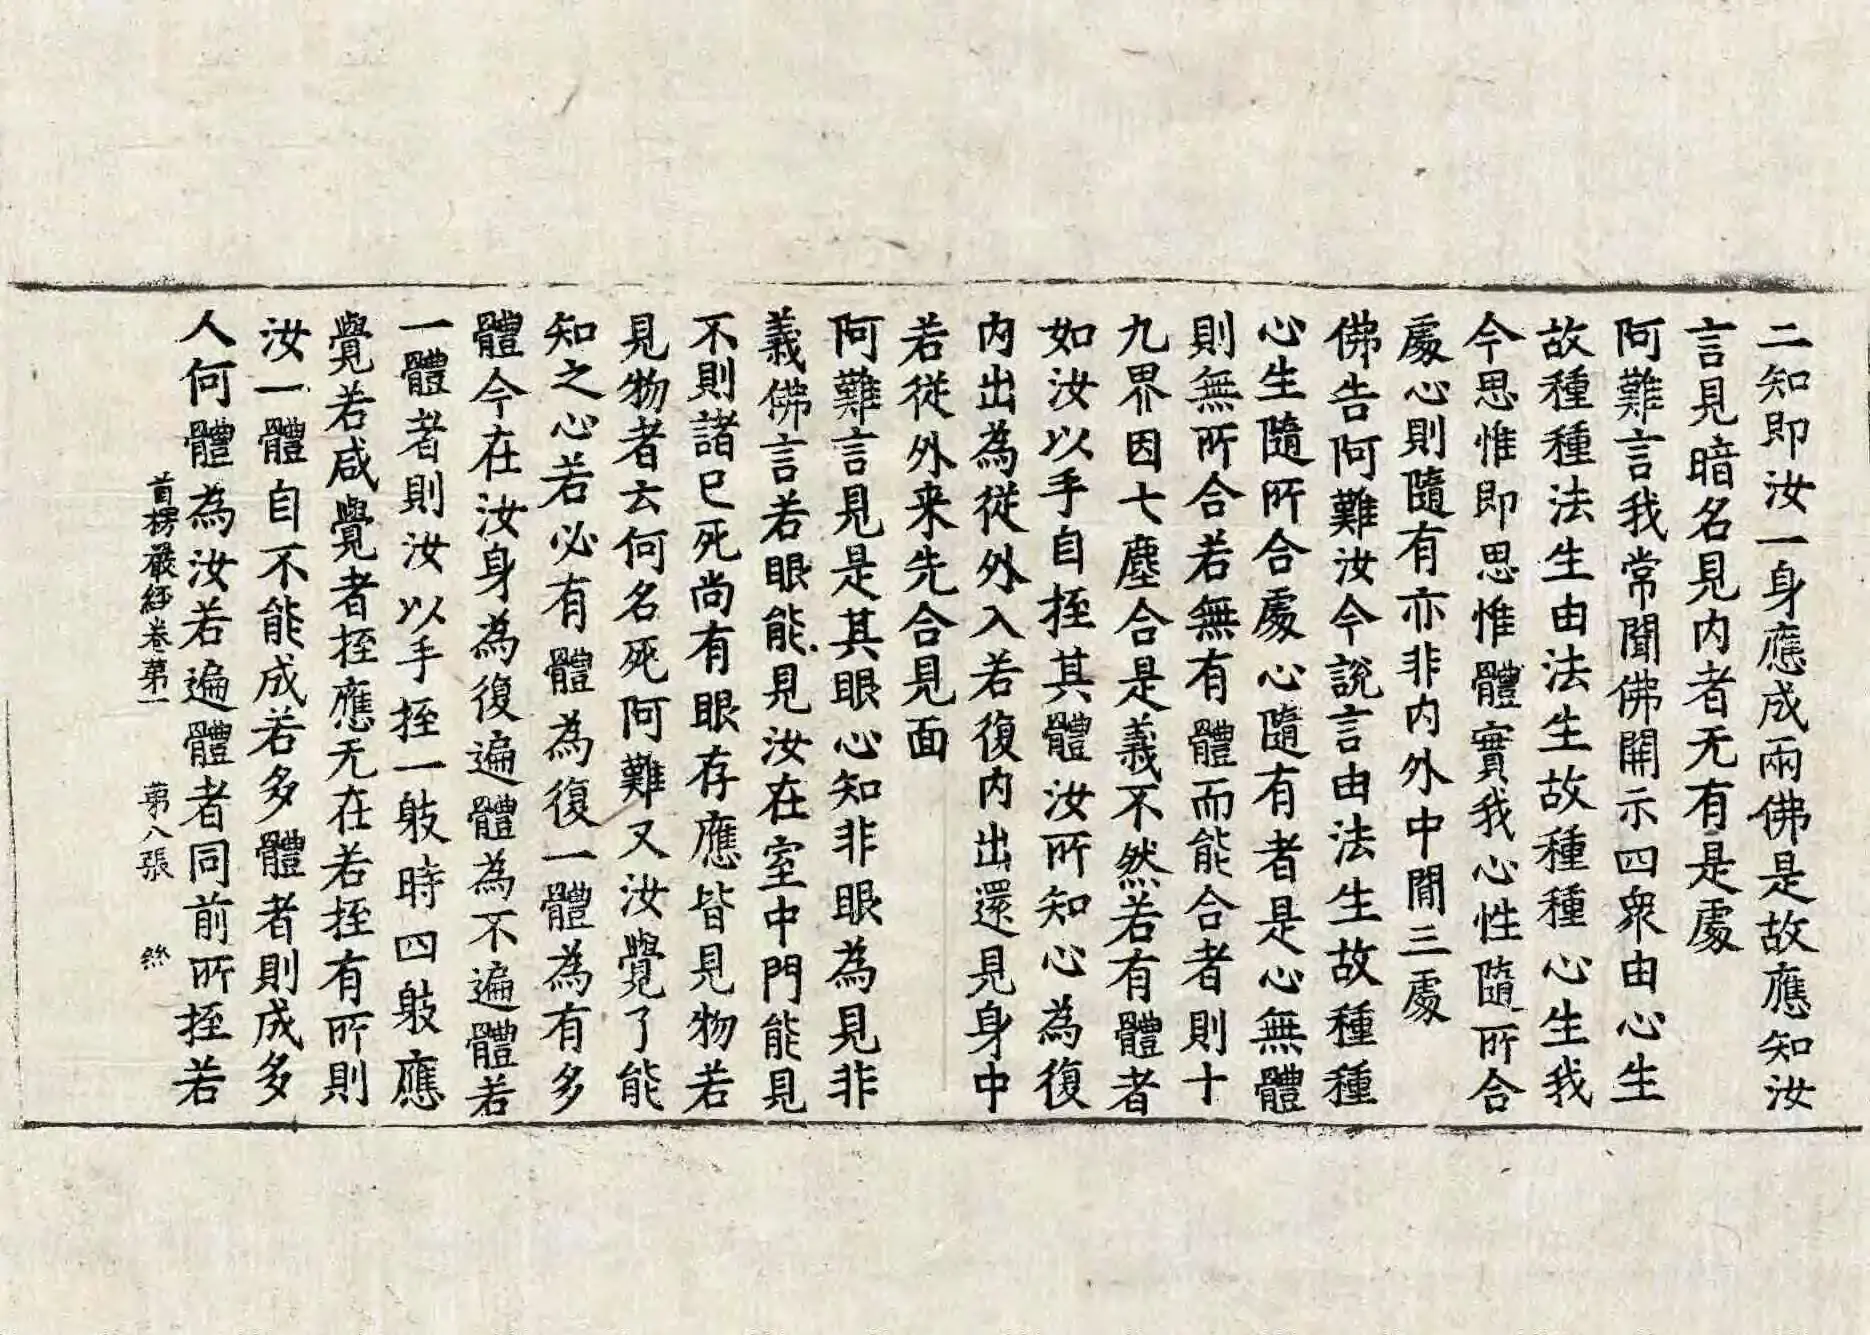 二知即汝一身應成兩佛是故應知汝
言見暗名見内者无有是處
阿難言我常聞佛開示四衆由心生
故種種法生由法生故種種心生我
今思惟即思惟體實我心性隨所合
處心則隨有亦非内外中間三處
佛告阿難汝今說言由法生故種種
心生隨所合處心隨有者是心無體
則無所合若無有體而能合者則十
九界因七塵合是義不然若有體者
如汝以手自挃其體汝所知心為復
内出為從外入若復内出還見身中
若從外来先合見面
阿難言見是其眼心知非眼為見非
義佛言若眼能見汝在室中門能見
不則諸已死尚有眼存應皆見物若
見物者云何名死阿難又汝覺了能
知之心若必有體為復一體為有多
體今在汝身為復遍體為不遍體若
一體者則汝以手挃一肢時四肢應
覺若咸覺者挃應无在若挃有所則
汝一體自不能成若多體者則成多
人何體為汝若遍體者同前所挃若
首楞嚴經卷第一 第八張 絲